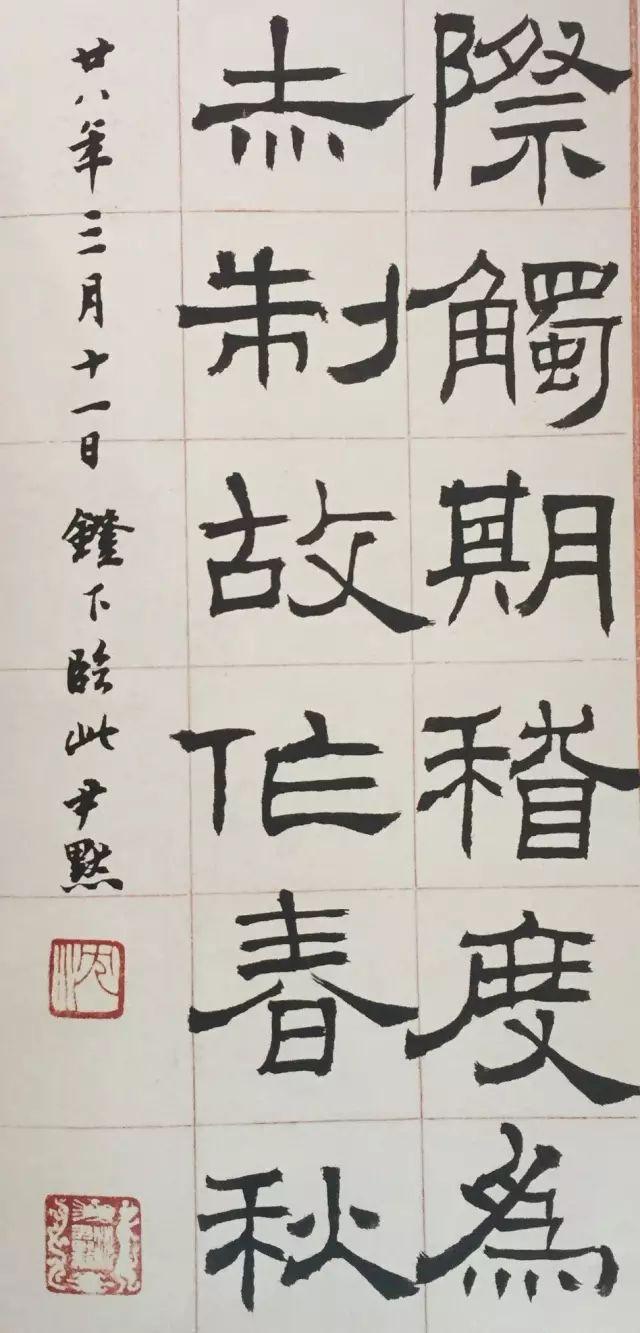 際觸期稽度為
赤制故作春秋
廿八年三月十一日鐙下臨此尹默
沈